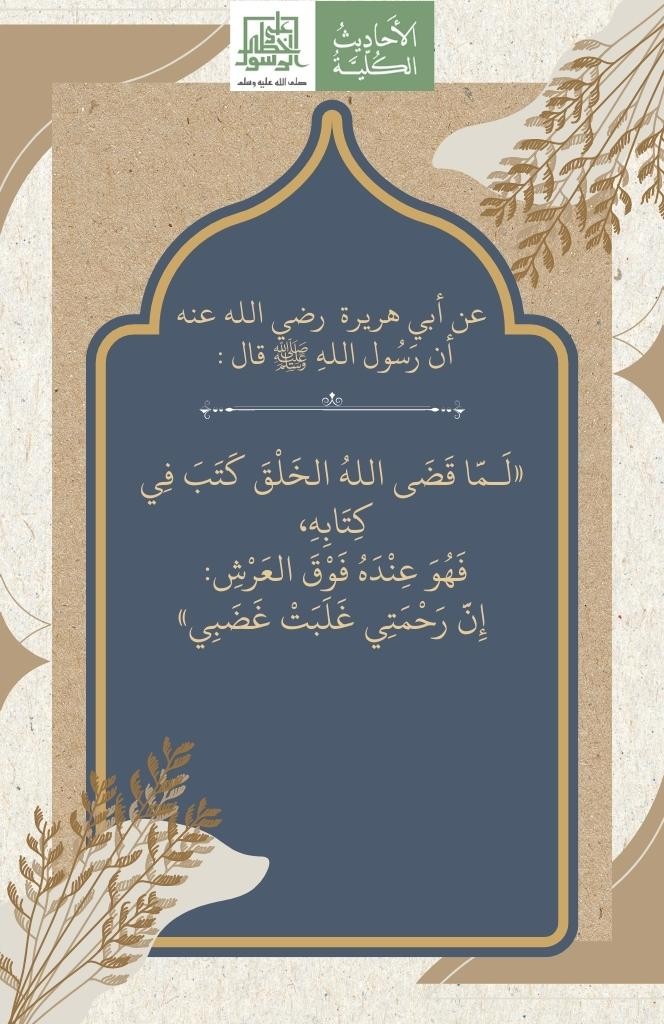 الأَحَادِيثُ
الكُلِّيَّةُ
على
خطى
الرسول
صلى الله عليه وسلم
عن أبي هريرة رضي الله عنه
أن رَسُول اللهِ ﷺ قال :
«لَـمّا قَضَى اللهُ الخَلْقَ كَتَبَ فِي
كِتَابِهِ،
فَهُوَ عِنْدَهُ فَوْقَ العَرْشِ:
إِنّ رَحْمَتِي غَلَبَتْ غَضَبِي»